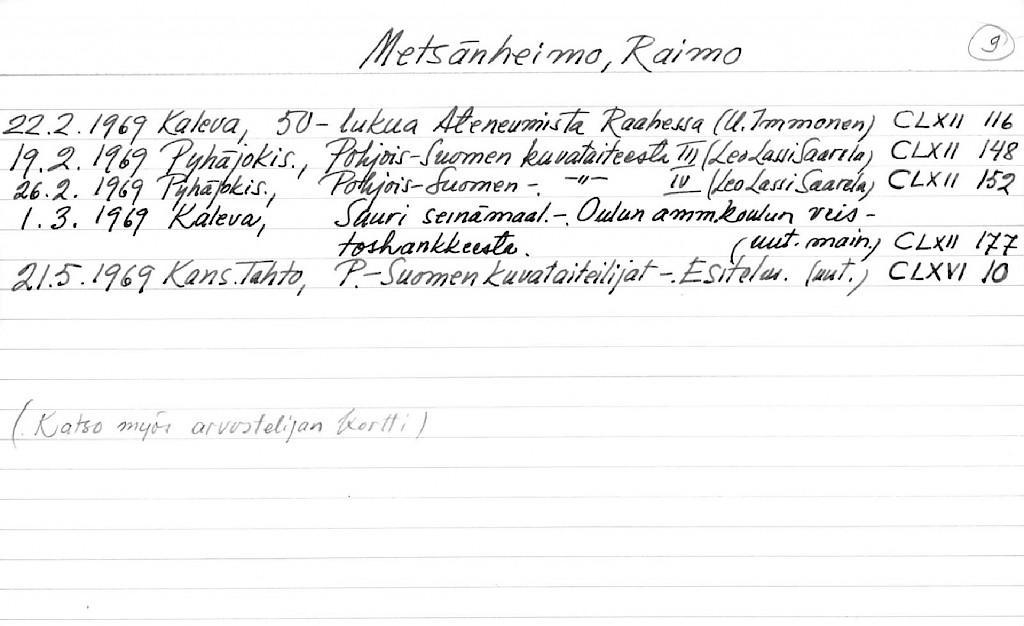 Metsänheimo, Raimo 9
22.2.1969 Kaleva, 50-lukua Ateneumista Raahessa (U. Immonen) CLXII 116
19.2.1969 Pyhäjokis., Pohjois-Suomen kuvataiteesta III (Leo Lassi Saarela) CLXII 148
26.2.1969 Pyhäjokis., Pohjois-Suomen -. -"- IV (Leo Lassi Saarela) CLXII 152
1.3.1969 Kaleva, Suuri seinämaal.-. Oulun ammkoulun veis-
toshankkeesta. (uut. main.) CLXII 177
21.5.1969 Kans.Tahto, P.-Suomen kuvataiteilijat -. Esittelu. (uut.) CLXVI 10
(Katso myös arvostelijan kortti)